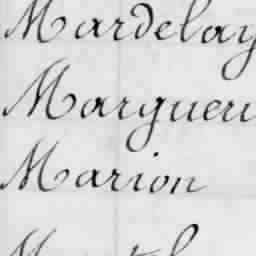 Mardelay
Margueri
Marion